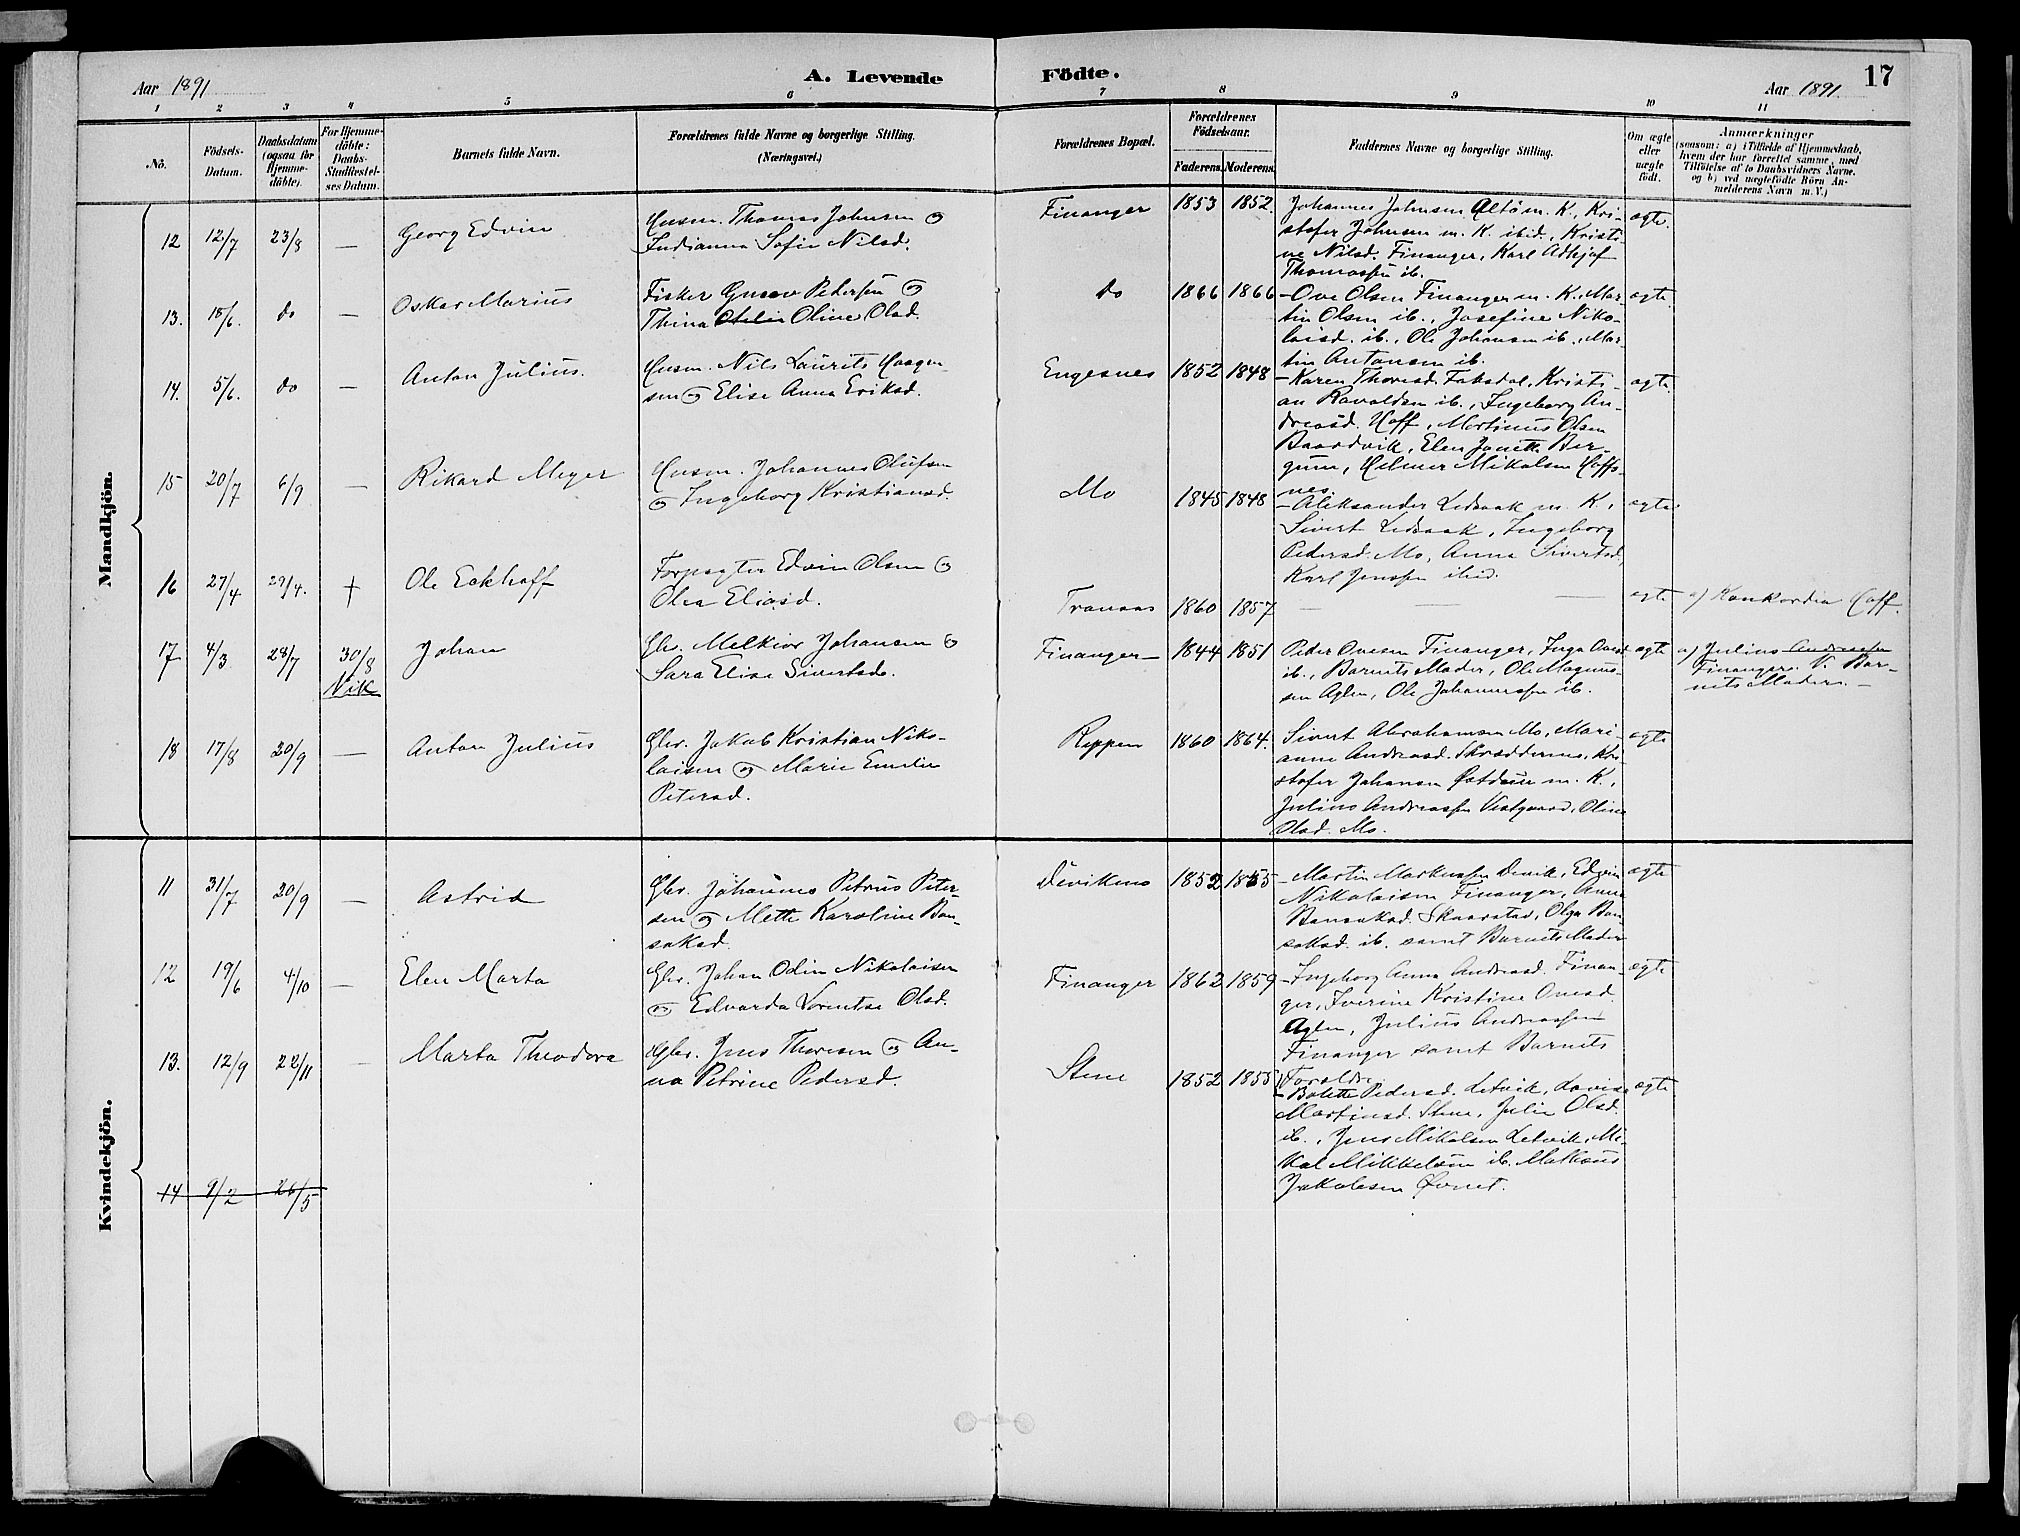 Aar 1891
A. Levende Födte.
Aar 1891.
17
1 2 3 4 5 6 7 8 9 10 11
No.
Födsels-Datum.
Daabsdatum (ogsaa for Hjemme-döbte).
For Hjemme-döbte: Daabs-Stadfæstel-ses Datum.
Barnets fulde Navn.
Forældrenes fulde Navne og borgerlige Stilling.
(Næringsvei.)
Forældrenes Bopæl.
Forældrenes Födselsaar.
Faderens. Moderens.
Faddernes Navne og borgerlige Stilling.
Om ægte eller uægte födt.
Anmærkninger
(saasom: a) i Tilfælde af Hjemmedaab,
hvem der har forrettet samme, med
Tilföielse af to Daabsvidners Navne.
og b) ved uægtefödte Börn An-
melderens Navn m. V.)
Mandkjön.
12 12/7 23/8 — Georg Edvin
Husm. Thomas Johnsen og
Indianna Sofie Nilsd.
Finanger 1853 1852.
Johannes Johnsen m. K., Kri-
stofer Johnsen m. K. ibid., Kristi-
ne Nilsd. Finanger, Karl
Thomassen ib.
ægte.
13. 18/6. do — Oskar Marius
Fisker Gustav Pedersen og
Thina Oline Olsd.
do 1866 1866
— Ove Olsen Finanger m. K. Mar-
tin Olsen ib., Josefine Niko-
laisd. ib., Ole Johansen ib., Mar-
tin Antonsen ib.
ægte
14. 5/6. do — Anton Julius.
Husm. Nils Laurits Haagen
sen og Elise Anna Eriksd.
Engesnes 1852 1848
— Karen Thoresd. Faksdal, Kristi-
an ib., Ingeborg An-
dreasd. Hoff, Martinus Olsen
Baardvik, Elen Ber-
gum, Hilmer Mikalsen Hoffs-
nes.
ægte
15 20/7 6/9 — Rikard Meyer
Husm. Johannes Olufsen
og Ingeborg Kristiansd.
Mo 1845 1848
— Aleksander m. K.,
Sivert Ingeborg
Pedersd. Mo, Anna Sivertsd.
Karl Jenssen ibid.
ægte
16 27/4 29/4. + Ole Eckhoff
Forpagter Edvin Olsen og
Olea Eliasd.
Tranaas 1860 1857 — — —
ægte a) Konkordia Hoff.
17 4/3 28/7 30/8 Johan
Nik
Gbr. Melkior Johansen og
Sara Elise Sivertsd.
Finanger— 1844 1851
Peder Ovesen Finanger, Inga Ovesd.
ib., Barnets Moder, Ole Magnus-
sen Aglen, Ole Johannessen ib.
ægte a) Julius Andreassen
Finanger. V. Bar-
nets Moder. —
18 17/8 20/9 — Anton Julius
Gbr. Jakob Kristian Niko-
laisen og Marie Emelie
Petersd.
Reppen 1860 1864.
Sivert Abrahamsen Mo, Mari-
anne Andreasd. Kri-
stofer Johansen m. K.,
Julius Andreassen Vestgaard, Oline
Olsd. Mo.
ægte
Kvindekjön.
11 31/7 20/9 — Astrid
Gbr. Johannes Petrus Peter-
sen og Mette Karoline Ban-
saksd.
Devikens 1852 1855
— Martin Markussen Devik, Edvin
Nikolaisen Finanger, Anna
Bansaksd. Skaarstad, Olga Ban-
saksd. ib. samt Barnets Moder
ægte
12 19/6 4/10 — Elen Marta
Gbr. Johan Odin Nikolaisen
og Edvarda Lorentse Olsd.
Finanger 1862 1859
— Ingeborg Anna Andreasd. Finan-
ger, Iverine Kristine Ovesd.
Aglen, Julius Andreassen
Finanger samt Barnets
Forældre.
ægte
13. 12/9 22/11 — Marta Theodora
Gbr. Jens Thoresen og An-
na Petrine Pedersd.
Stene 1852 1855
— Bolette Pedersd. Letvik, Lovise
Martinsd. Stene, Julie Olsd.
ib., Jens Mikalsen Letvik, Mi-
kal Mikkelsen ib. Mathæus
Jakobsen Øvnet.
ægte
14 9/2 26/5